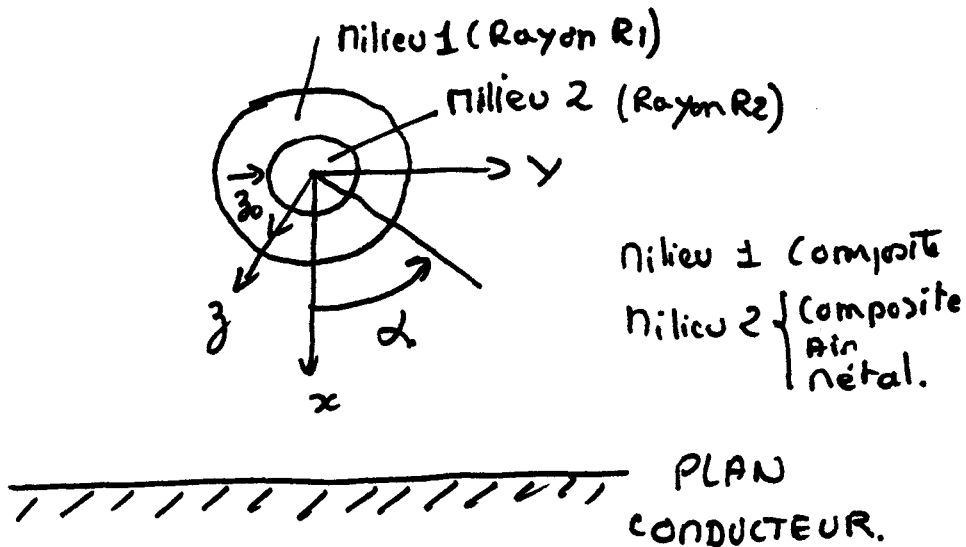 Milieu 1 (Rayon R1)
Milieu 2 (Rayon R2)
y
z0
z
α
x
Milieu 1 Composite
Milieu 2 { Composite
Air
Métal.
PLAN
CONDUCTEUR.